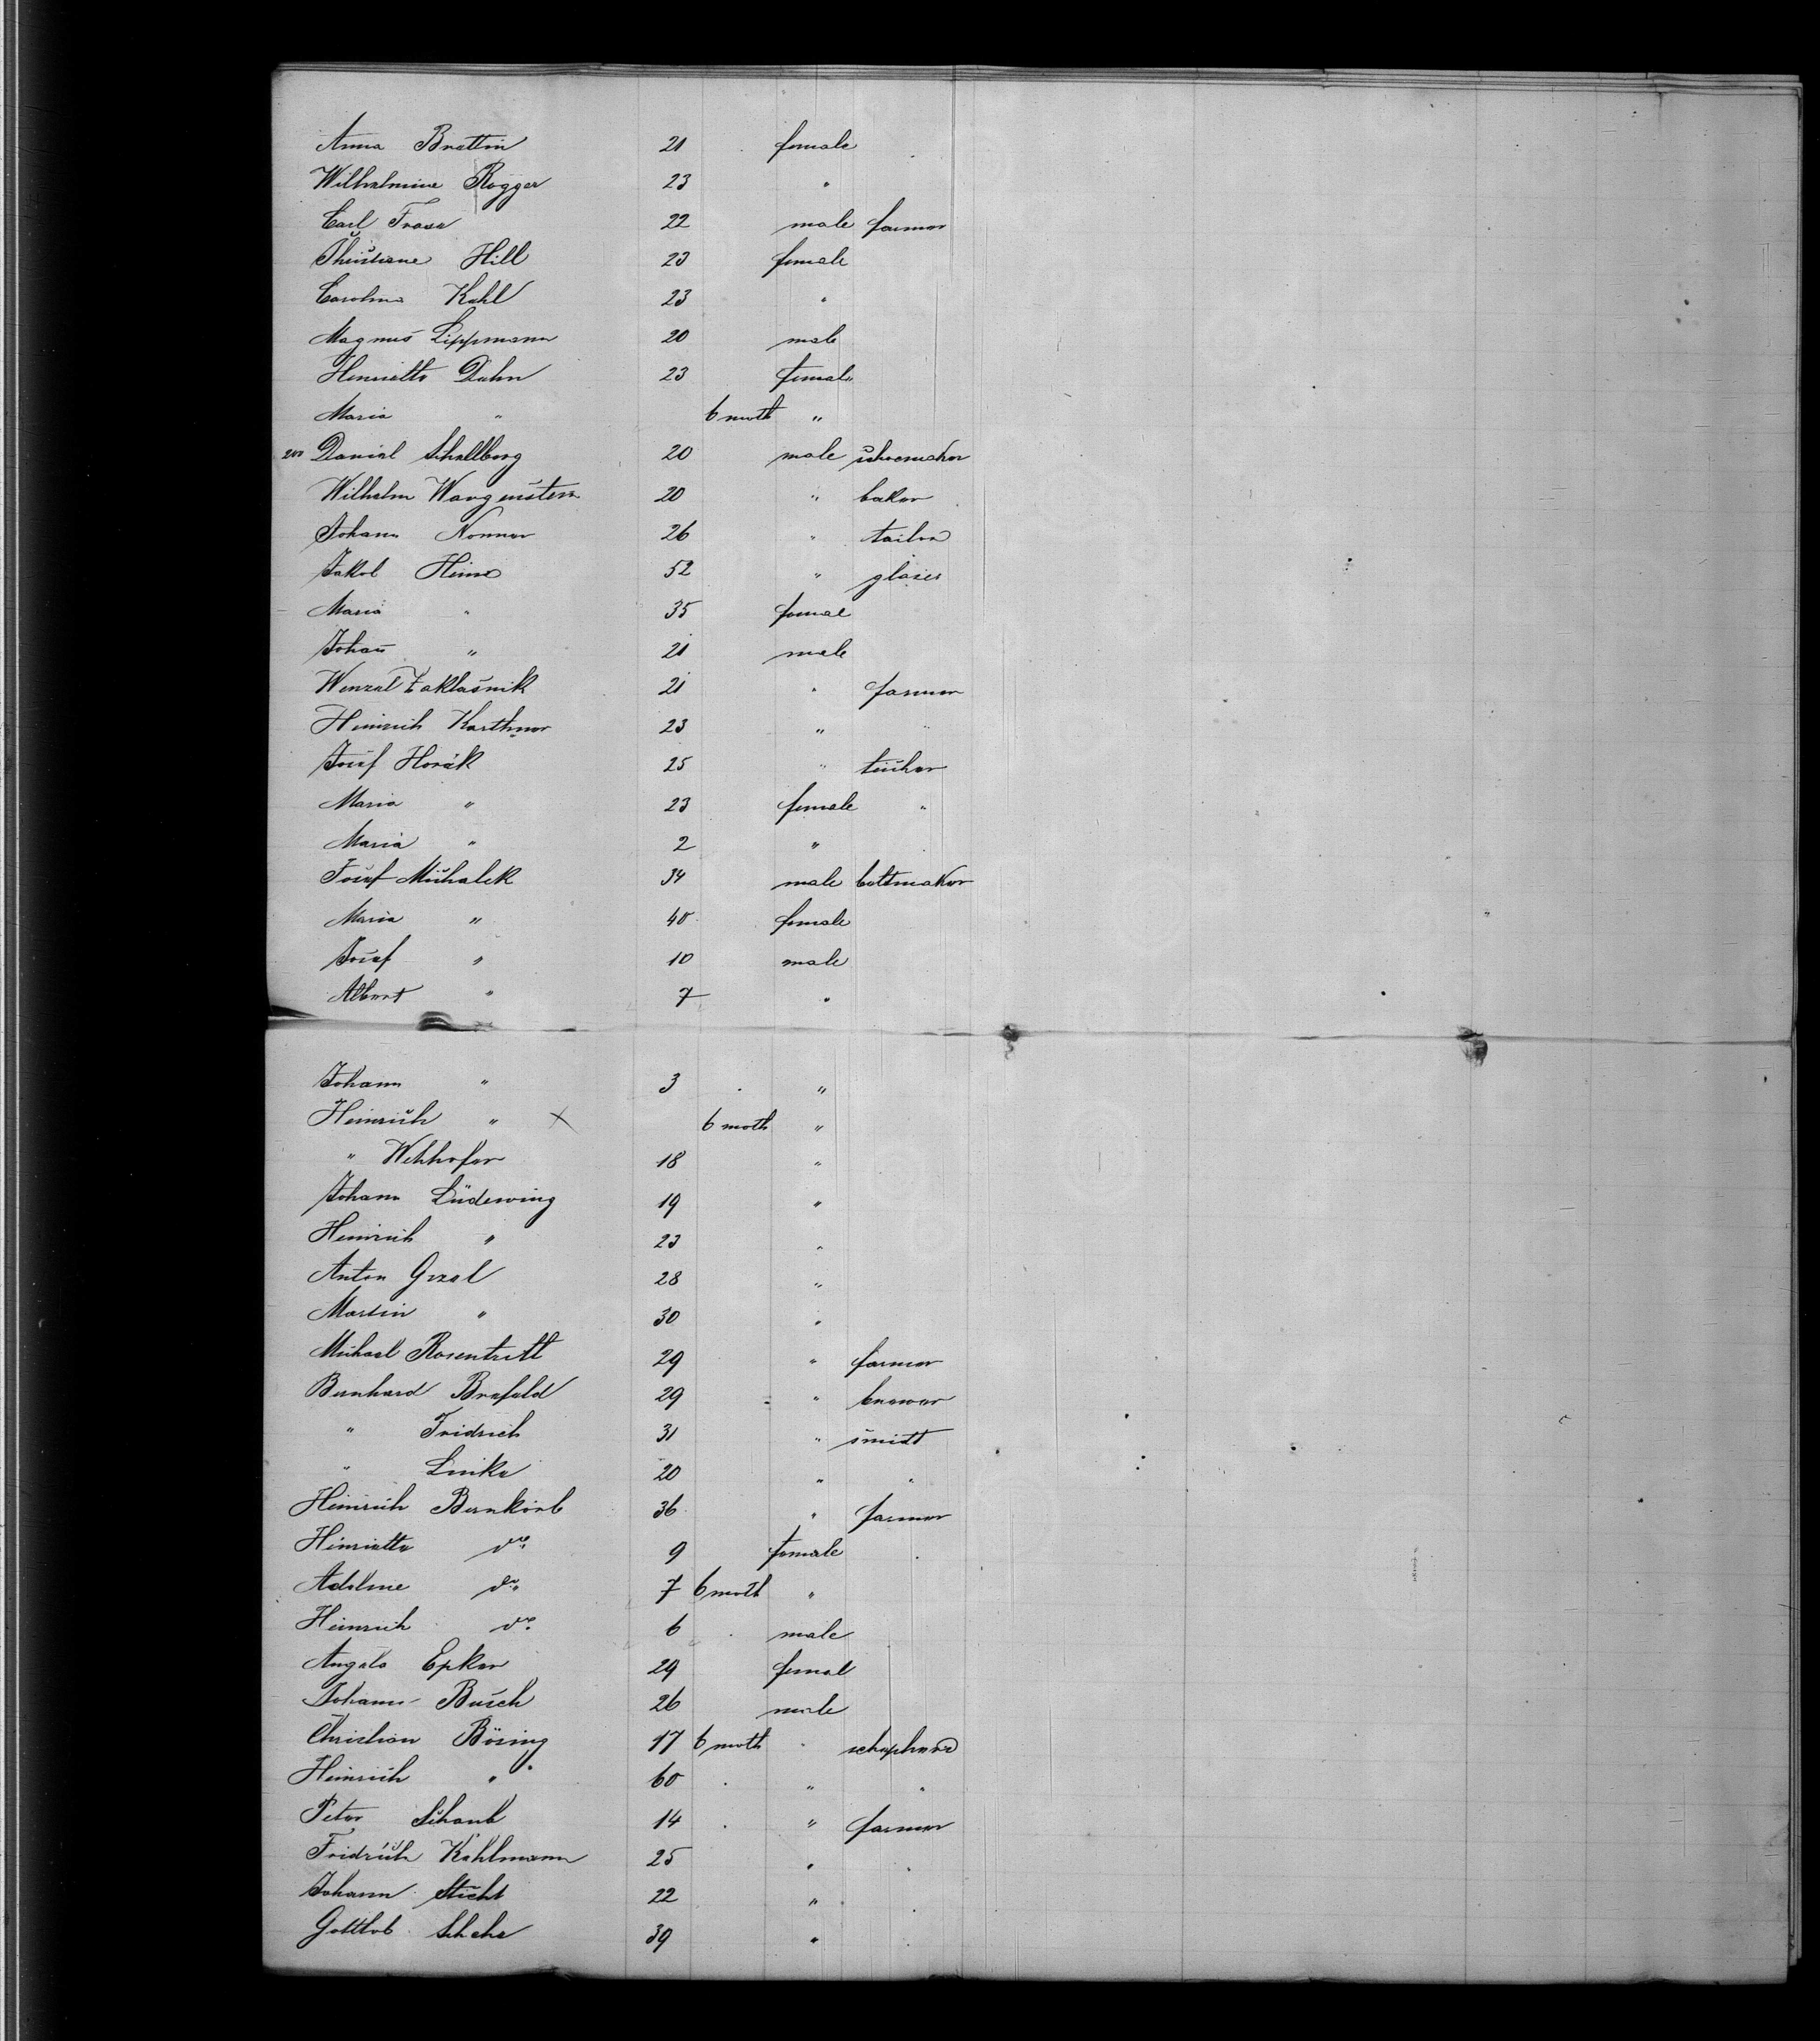 Anna Brettin 21 female
Wilhelmine Rogger 23 "
Carl Frase 22 male farmer
Christiane Hill 23 female
Caroline Kahl 23 "
Magnus Lippmann 20 male
Henriette Dahn 23 female
Maria " 6 moth "
200 Daniel Schellberg 20 male schoemaker
Wilhelm Wangenstern 20 " baker
Johann Nonner 26 " tailor
Jakob Heine 52 " glasier
Maria " 35 femal
Johan̄ " 21 male
Wenzel Zaklasnik 21 " farmer
Heinrich Karthner 23 " "
Josef Horák 25 " tischer
Maria " 23 female "
Maria " 2 "
Josef Michalek 34 male beltmaker
Maria " 40 female
Josef " 10 male
Albert " 7 "
Johann " 3 "
Heinrich " X 6 moth "
" Wehhofer 18 "
Johann Lüdewing 19 "
Heinrich " 23 "
Anton Gzal 28 "
Martin " 30 "
Michael Rosentritt 29 " farmer
Bernhard Brefeld 29 " brewer
" Fridrich 31 " smitt
" Linike 20 " "
Heinrich Bernkörb 36 " farmer
Henriette do 9 female
Adeline do 7 6 moth "
Heinrich do 6 male
Angela Epker 29 femal
Johann Busch 26 male
Christian Bösing 17 6 moth " schepherd
Heinrich " 60 " "
Peter Schaub 14 " farmer
Fridrich Kahlmann 25 " "
Johann Sticht 22 "
Gottlob 39 "